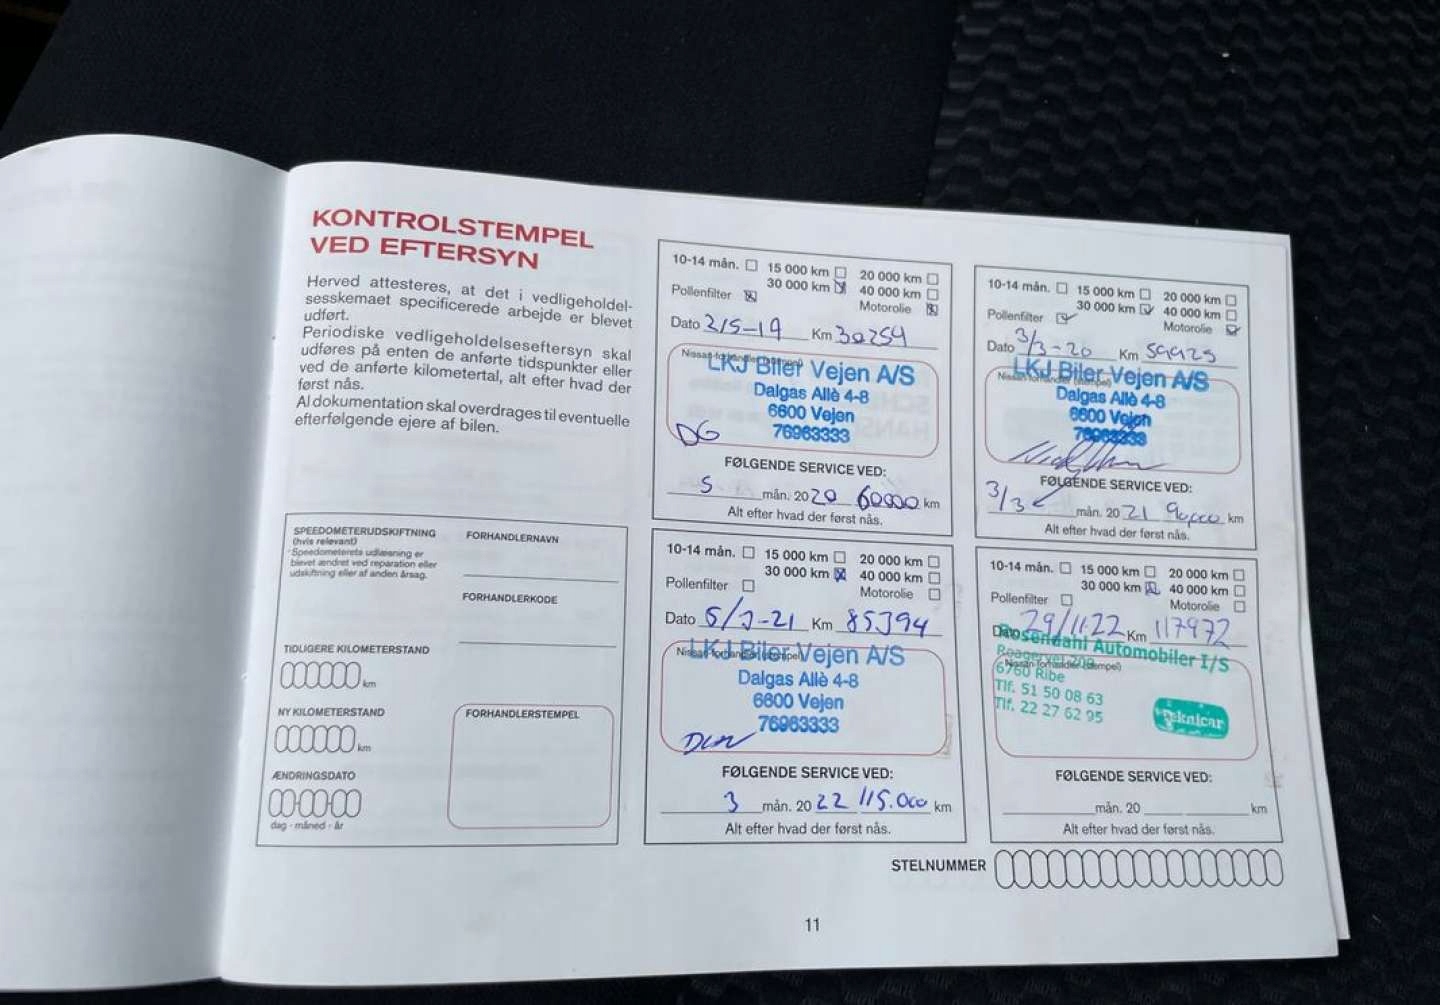 KONTROLSTEMPEL
VED EFTERSYN
Herved attesteres, at det i vedligeholdel-
sesskemaet specificerede arbejde er blevet
udført.
Periodiske vedligeholdelseseftersyn skal
udføres på enten de anførte tidspunkter eller
ved de anførte kilometertal, alt efter hvad der
først nås.
Al dokumentation skal overdrages til eventuelle
efterfølgende ejere af bilen.
SPEEDOMETERUDSKIFTNING
(hvis relevant)
Speedometerets udlæsning er
blevet ændret ved reparation eller
udskiftning eller af anden årsag.
FORHANDLERNAVN
FORHANDLERKODE
TIDLIGERE KILOMETERSTAND
km
NY KILOMETERSTAND
km
ÆNDRINGSDATO
dag - måned - år
FORHANDLERSTEMPEL
10-14 mån. 15 000 km 20 000 km
30 000 km 40 000 km
Pollenfilter Motorolie
Dato 2/5-19 Km 30254
Nissan-forhandler (stempel)
LKJ Biler Vejen A/S
Dalgas Allè 4-8
6600 Vejen
76963333
DG
FØLGENDE SERVICE VED:
5 mån. 20 20 60000 km
Alt efter hvad der først nås.
10-14 mån. 15 000 km 20 000 km
30 000 km 40 000 km
Pollenfilter Motorolie
Dato 3/3-20 Km 59925
Nissan-forhandler (stempel)
LKJ Biler Vejen A/S
Dalgas Allè 4-8
6600 Vejen
76963333
FØLGENDE SERVICE VED:
3/3 mån. 20 21 90.000 km
Alt efter hvad der først nås.
10-14 mån. 15 000 km 20 000 km
30 000 km 40 000 km
Pollenfilter Motorolie
Dato 5/3-21 Km 85394
Nissan-forhandler (stempel)
LKJ Biler Vejen A/S
Dalgas Allè 4-8
6600 Vejen
76963333
FØLGENDE SERVICE VED:
3 mån. 20 22 115.000 km
Alt efter hvad der først nås.
10-14 mån. 15 000 km 20 000 km
30 000 km 40 000 km
Pollenfilter Motorolie
Dato 29/11.22 Km 117972
Rosendahl Automobiler I/S
Nissan-forhandler (stempel)
6760 Ribe
Tlf. 51 50 08 63
Tlf. 22 27 62 95
Teknicar
FØLGENDE SERVICE VED:
mån. 20 km
Alt efter hvad der først nås.
STELNUMMER
11